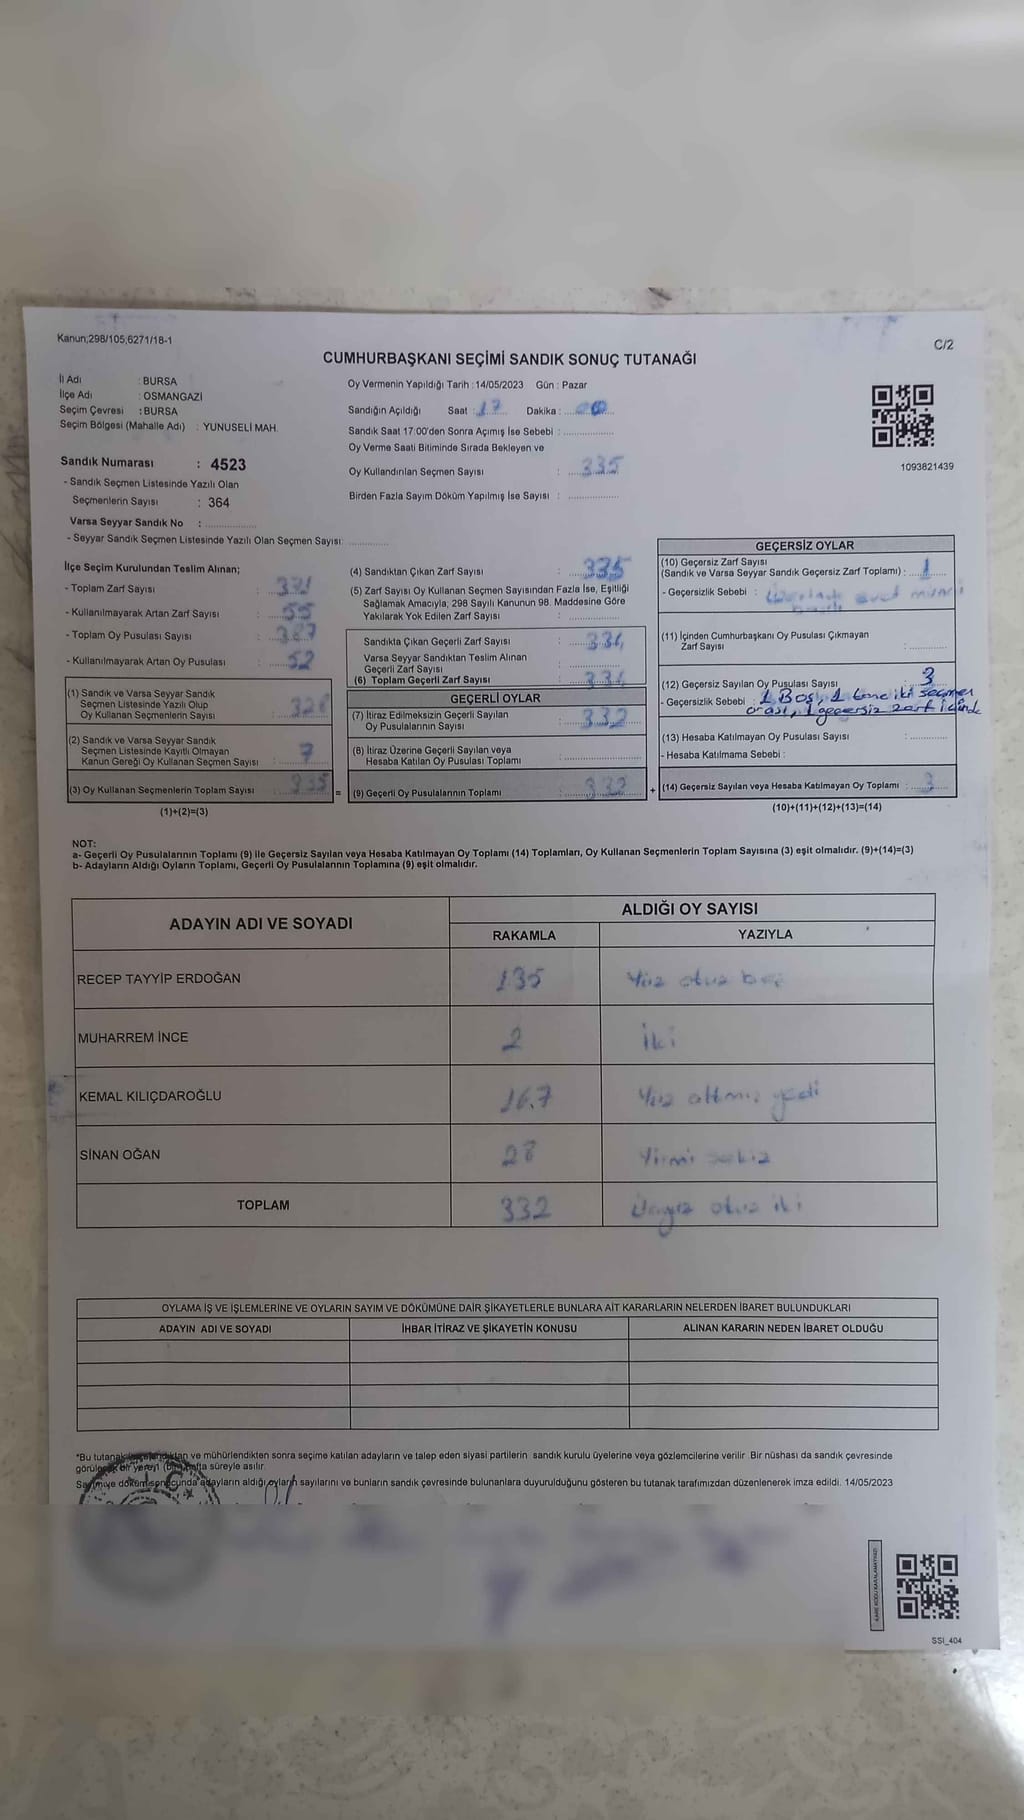 Kanun;298/105;6271/18-1
C/2
CUMHURBAŞKANI SEÇİMİ SANDIK SONUÇ TUTANAĞI
İl Adı : BURSA
İlçe Adı : OSMANGAZİ
Seçim Çevresi : BURSA
Seçim Bölgesi (Mahalle Adı) : YUNUSELİ MAH.
Sandık Numarası : 4523
- Sandık Seçmen Listesinde Yazılı Olan
Seçmenlerin Sayısı : 364
Varsa Seyyar Sandık No :
- Seyyar Sandık Seçmen Listesinde Yazılı Olan Seçmen Sayısı:
Oy Vermenin Yapıldığı Tarih : 14/05/2023 Gün : Pazar
Sandığın Açıldığı Saat : 17 Dakika : 00
Sandık Saat 17:00'den Sonra Açımış İse Sebebi :
Oy Verme Saati Bitiminde Sırada Bekleyen ve
Oy Kullandırılan Seçmen Sayısı : 335
Birden Fazla Sayım Döküm Yapılmış İse Sayısı :
1093821439
İlçe Seçim Kurulundan Teslim Alınan;
- Toplam Zarf Sayısı :
- Kullanılmayarak Artan Zarf Sayısı : 55
- Toplam Oy Pusulası Sayısı : 387
- Kullanılmayarak Artan Oy Pusulası : 52
(1) Sandık ve Varsa Seyyar Sandık
Seçmen Listesinde Yazılı Olup
Oy Kullanan Seçmenlerin Sayısı : 328
(2) Sandık ve Varsa Seyyar Sandık
Seçmen Listesinde Kayıtlı Olmayan
Kanun Gereği Oy Kullanan Seçmen Sayısı : 7
(3) Oy Kullanan Seçmenlerin Toplam Sayısı : 335
(1)+(2)=(3)
=
(4) Sandıktan Çıkan Zarf Sayısı : 335
(5) Zarf Sayısı Oy Kullanan Seçmen Sayısından Fazla İse, Eşitliği
Sağlamak Amacıyla, 298 Sayılı Kanunun 98. Maddesine Göre
Yakılarak Yok Edilen Zarf Sayısı :
Sandıkta Çıkan Geçerli Zarf Sayısı : 334
Varsa Seyyar Sandıktan Teslim Alınan
Geçerli Zarf Sayısı :
(6) Toplam Geçerli Zarf Sayısı : 334
GEÇERLİ OYLAR
(7) İtiraz Edilmeksizin Geçerli Sayılan
Oy Pusulalarının Sayısı : 332
(8) İtiraz Üzerine Geçerli Sayılan veya
Hesaba Katılan Oy Pusulası Toplamı :
(9) Geçerli Oy Pusulalarının Toplamı : 332
+
GEÇERSİZ OYLAR
(10) Geçersiz Zarf Sayısı
(Sandık ve Varsa Seyyar Sandık Geçersiz Zarf Toplamı) : 1
- Geçersizlik Sebebi : evet
(11) İçinden Cumhurbaşkanı Oy Pusulası Çıkmayan
Zarf Sayısı :
(12) Geçersiz Sayılan Oy Pusulası Sayısı : 3
- Geçersizlik Sebebi : 1 Boş, 1 tane iki seçmen
arası, 1 geçersiz zarf içinde
(13) Hesaba Katılmayan Oy Pusulası Sayısı :
- Hesaba Katılmama Sebebi :
(14) Geçersiz Sayılan veya Hesaba Katılmayan Oy Toplamı : 3
(10)+(11)+(12)+(13)=(14)
NOT:
a- Geçerli Oy Pusulalarının Toplamı (9) ile Geçersiz Sayılan veya Hesaba Katılmayan Oy Toplamı (14) Toplamları, Oy Kullanan Seçmenlerin Toplam Sayısına (3) eşit olmalıdır. (9)+(14)=(3)
b- Adayların Aldığı Oyların Toplamı, Geçerli Oy Pusulalarının Toplamına (9) eşit olmalıdır.
ADAYIN ADI VE SOYADI ALDIĞI OY SAYISI
RAKAMLA YAZIYLA
RECEP TAYYİP ERDOĞAN 135 Yüz otuz beş
MUHARREM İNCE 2 İki
KEMAL KILIÇDAROĞLU 167 Yüz altmış yedi
SİNAN OĞAN 28 Yirmi sekiz
TOPLAM 332 Üçyüz otuz iki
OYLAMA İŞ VE İŞLEMLERİNE VE OYLARIN SAYIM VE DÖKÜMÜNE DAİR ŞİKAYETLERLE BUNLARA AİT KARARLARIN NELERDEN İBARET BULUNDUKLARI
ADAYIN ADI VE SOYADI İHBAR İTİRAZ VE ŞİKAYETİN KONUSU ALINAN KARARIN NEDEN İBARET OLDUĞU
*Bu tutanak ve mühürlendikten sonra seçime katılan adayların ve talep eden siyasi partilerin sandık kurulu üyelerine veya gözlemcilerine verilir Bir nüshası da sandık çevresinde
süreyle asılır.
adayların aldığı oyların sayılarını ve bunların sandık çevresinde bulunanlara duyurulduğunu gösteren bu tutanak tarafımızdan düzenlenerek imza edildi. 14/05/2023
SSİ_404